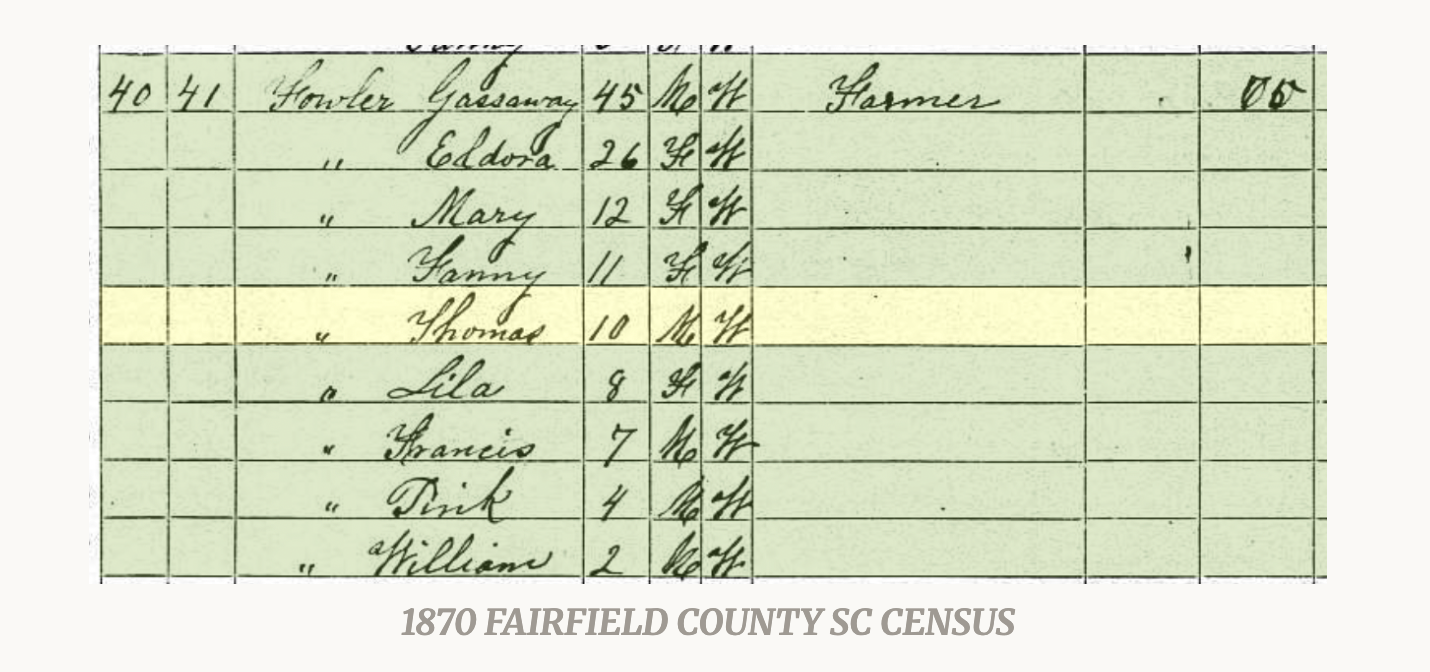 40 41 Fowler Gassaway 45 M W Farmer
" Eldora 26 F W
" Mary 12 F W
" Fanny 11 F W
" Thomas 10 M W
" Lila 8 F W
" Francis 7 M W
" Pink 4 M W
" William 2 M W
1870 FAIRFIELD COUNTY SC CENSUS